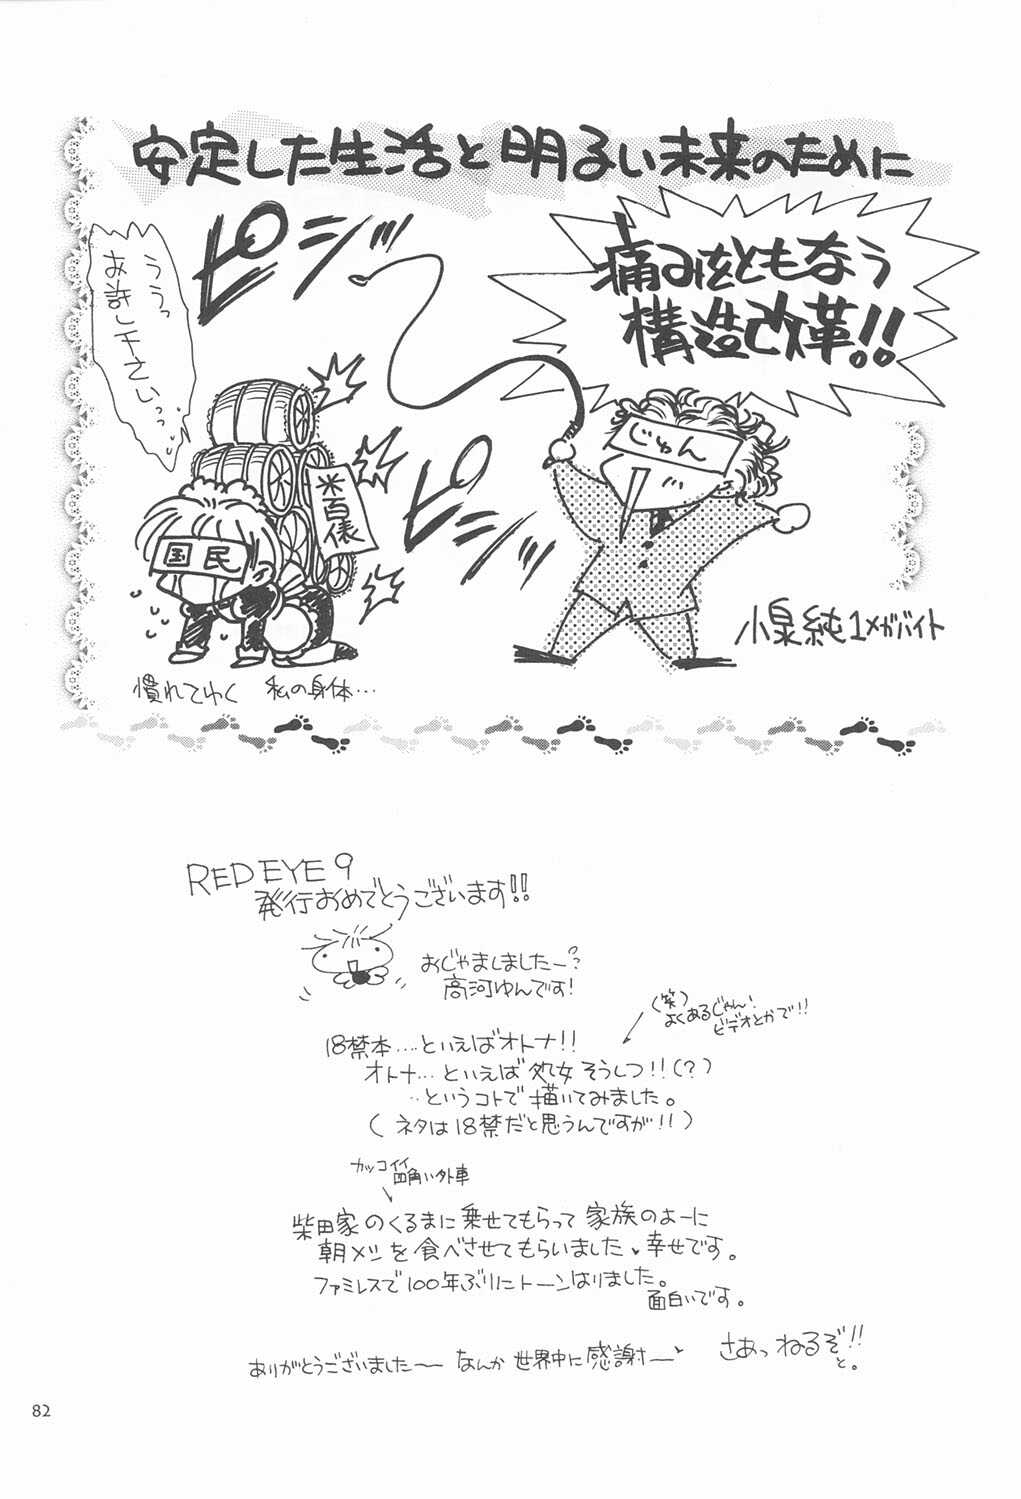 安定した生活と明るい未来のために
痛みをともなう
構造改革!!
ピシーッ
ううっ
お許し下さいっ
じゅん
米百俵
国民
ピシーッ
小泉純1メガバイト
慣れてゆく 私の身体…
RED EYE 9
発行おめでとうございます!!
おじゃましましたー?
高河ゆんです!
(笑)
よくあるじゃん!
ビデオとかで!!
18禁本…といえばオトナ!!
オトナ…といえば処女そうしつ!!(?)
…というコトで描いてみました。
(ネタは18禁だと思うんですが!!)
カッコイイ
四角い外車
柴田家のくるまに乗せてもらって家族のよーに
朝メシを食べさせてもらいました♥幸せです。
ファミレスで100年ぶりにトーンはりました。
面白いです。
さあっねるぞ!!
と。
ありがとうございました〜 なんか世界中に感謝ー♥
82